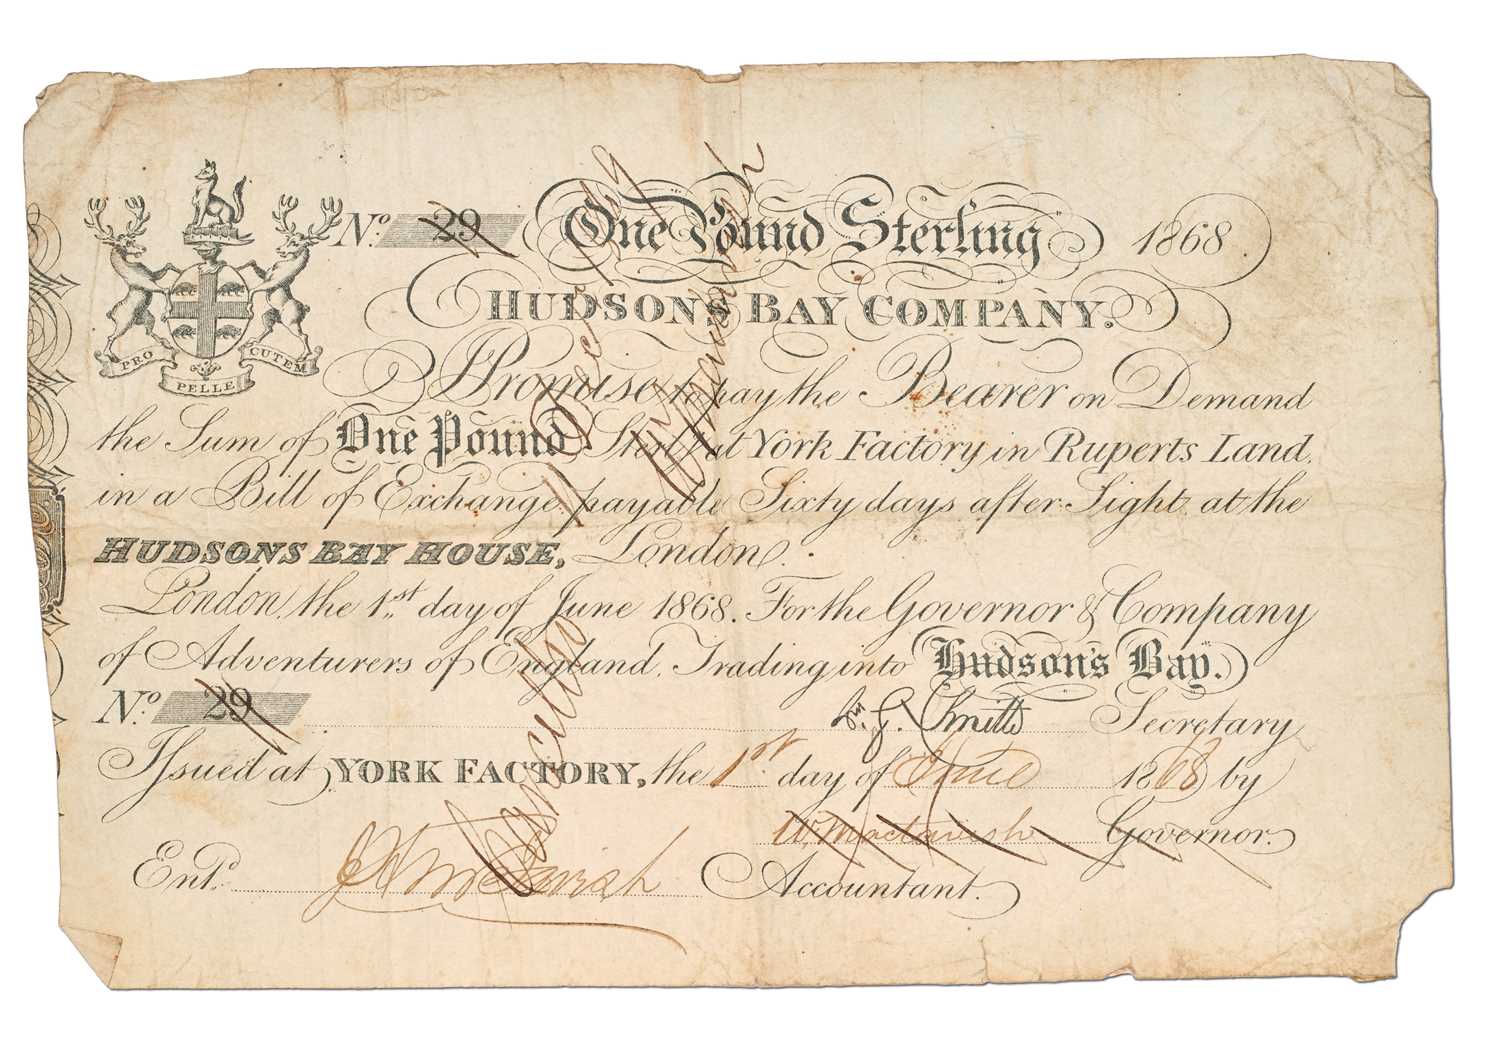 No. 29 One Pound Sterling 1868
HUDSONS BAY COMPANY.
PRO PELLE CUTEM
I Promise to pay the Bearer on Demand
the Sum of One Pound Sterlg. at York Factory in Ruperts Land
in a Bill of Exchange payable Sixty days after Sight at the
HUDSONS BAY HOUSE, London.
London, the 1st. day of June 1868. For the Governor & Company
of Adventurers of England, Trading into Hudson's Bay.
No. 29 Smith Secretary
Issued at YORK FACTORY, the 1st. day of June 1868 by
W. Mactavish Governor.
Entd. Accountant.
Cancelled